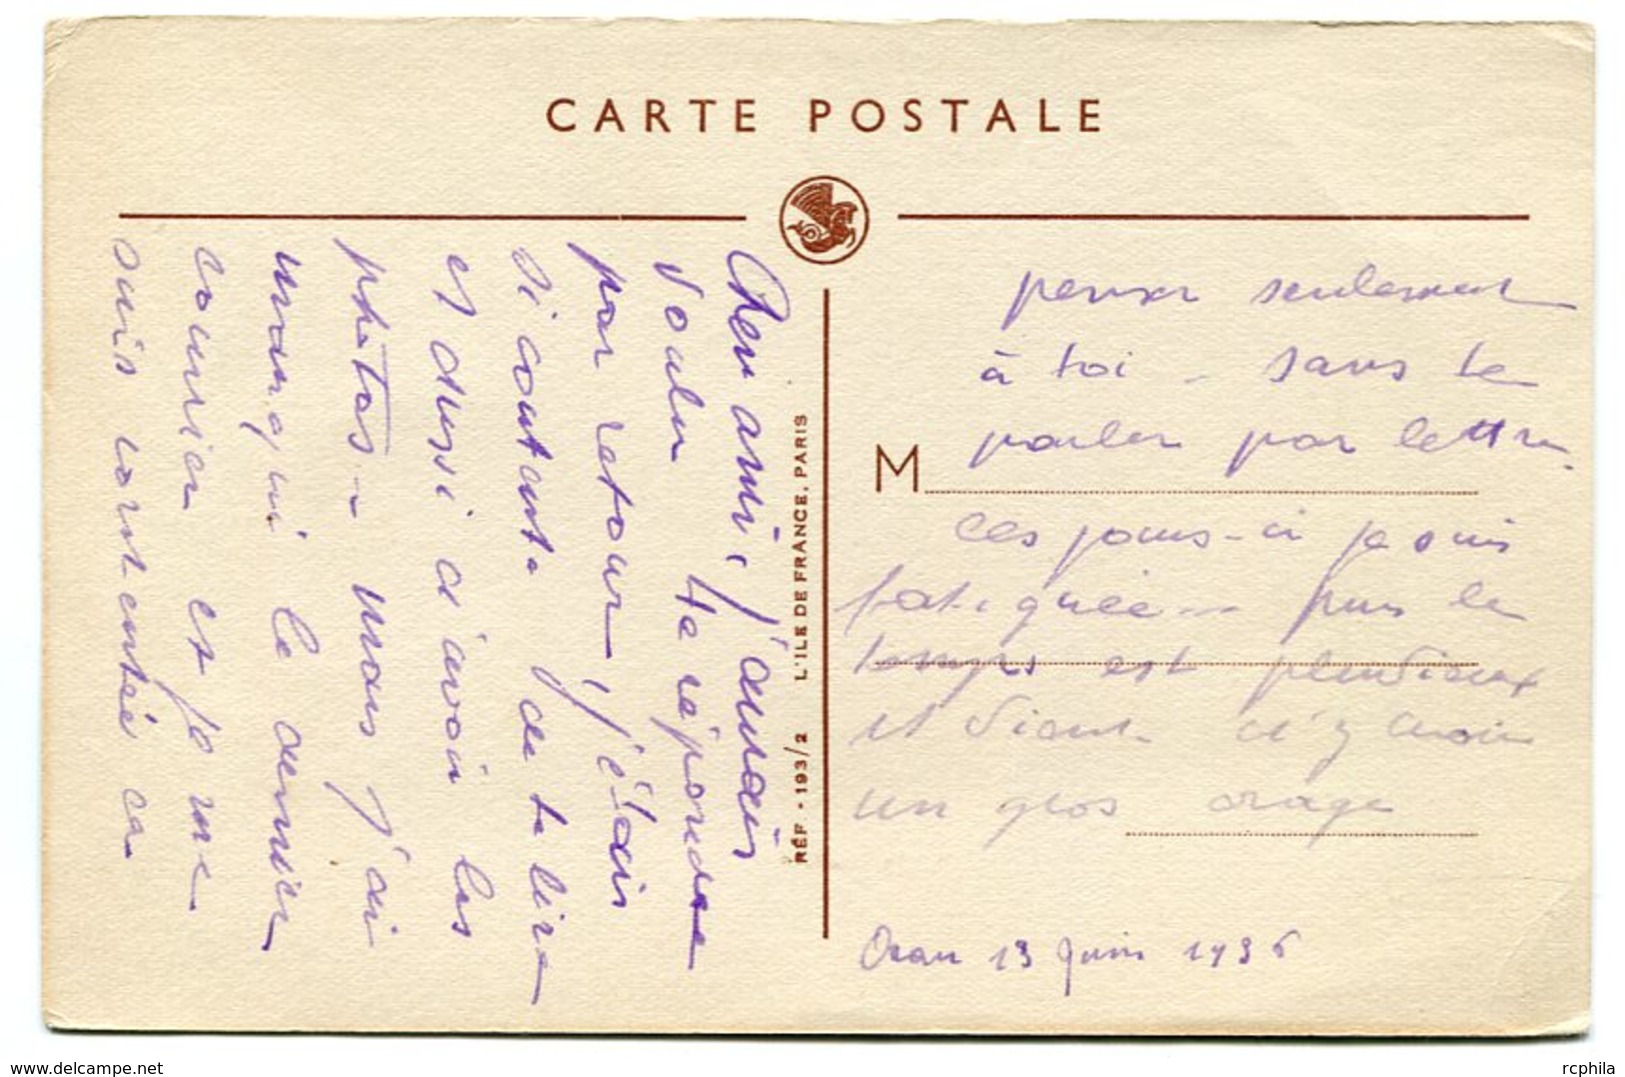 CARTE POSTALE
Cher ami, j'aurais
voulu te répondre
par retour, j'étais
si contente de te lire
et aussi d'avoir les
photos - mais j'ai
manqué le dernier
courrier et je me
suis contentée de
RÉF - 193/2 L'ILE DE FRANCE, PARIS
penser seulement
à toi - sans te
parler par lettre.
M
Ces jours-ci je suis
fatiguée - puis le
temps est pluvieux
et vient d'y avoir
un gros orage
Oran 13 Juin 1936
rcphila